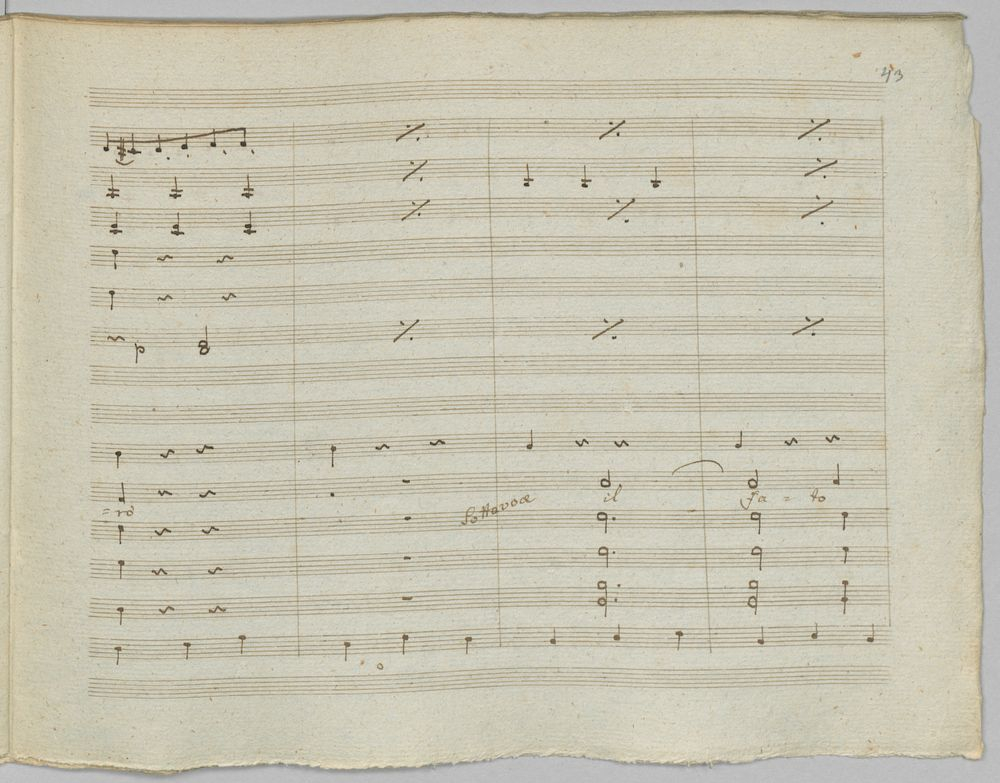 43
p
=rò
Sottovoce
il
fa = to